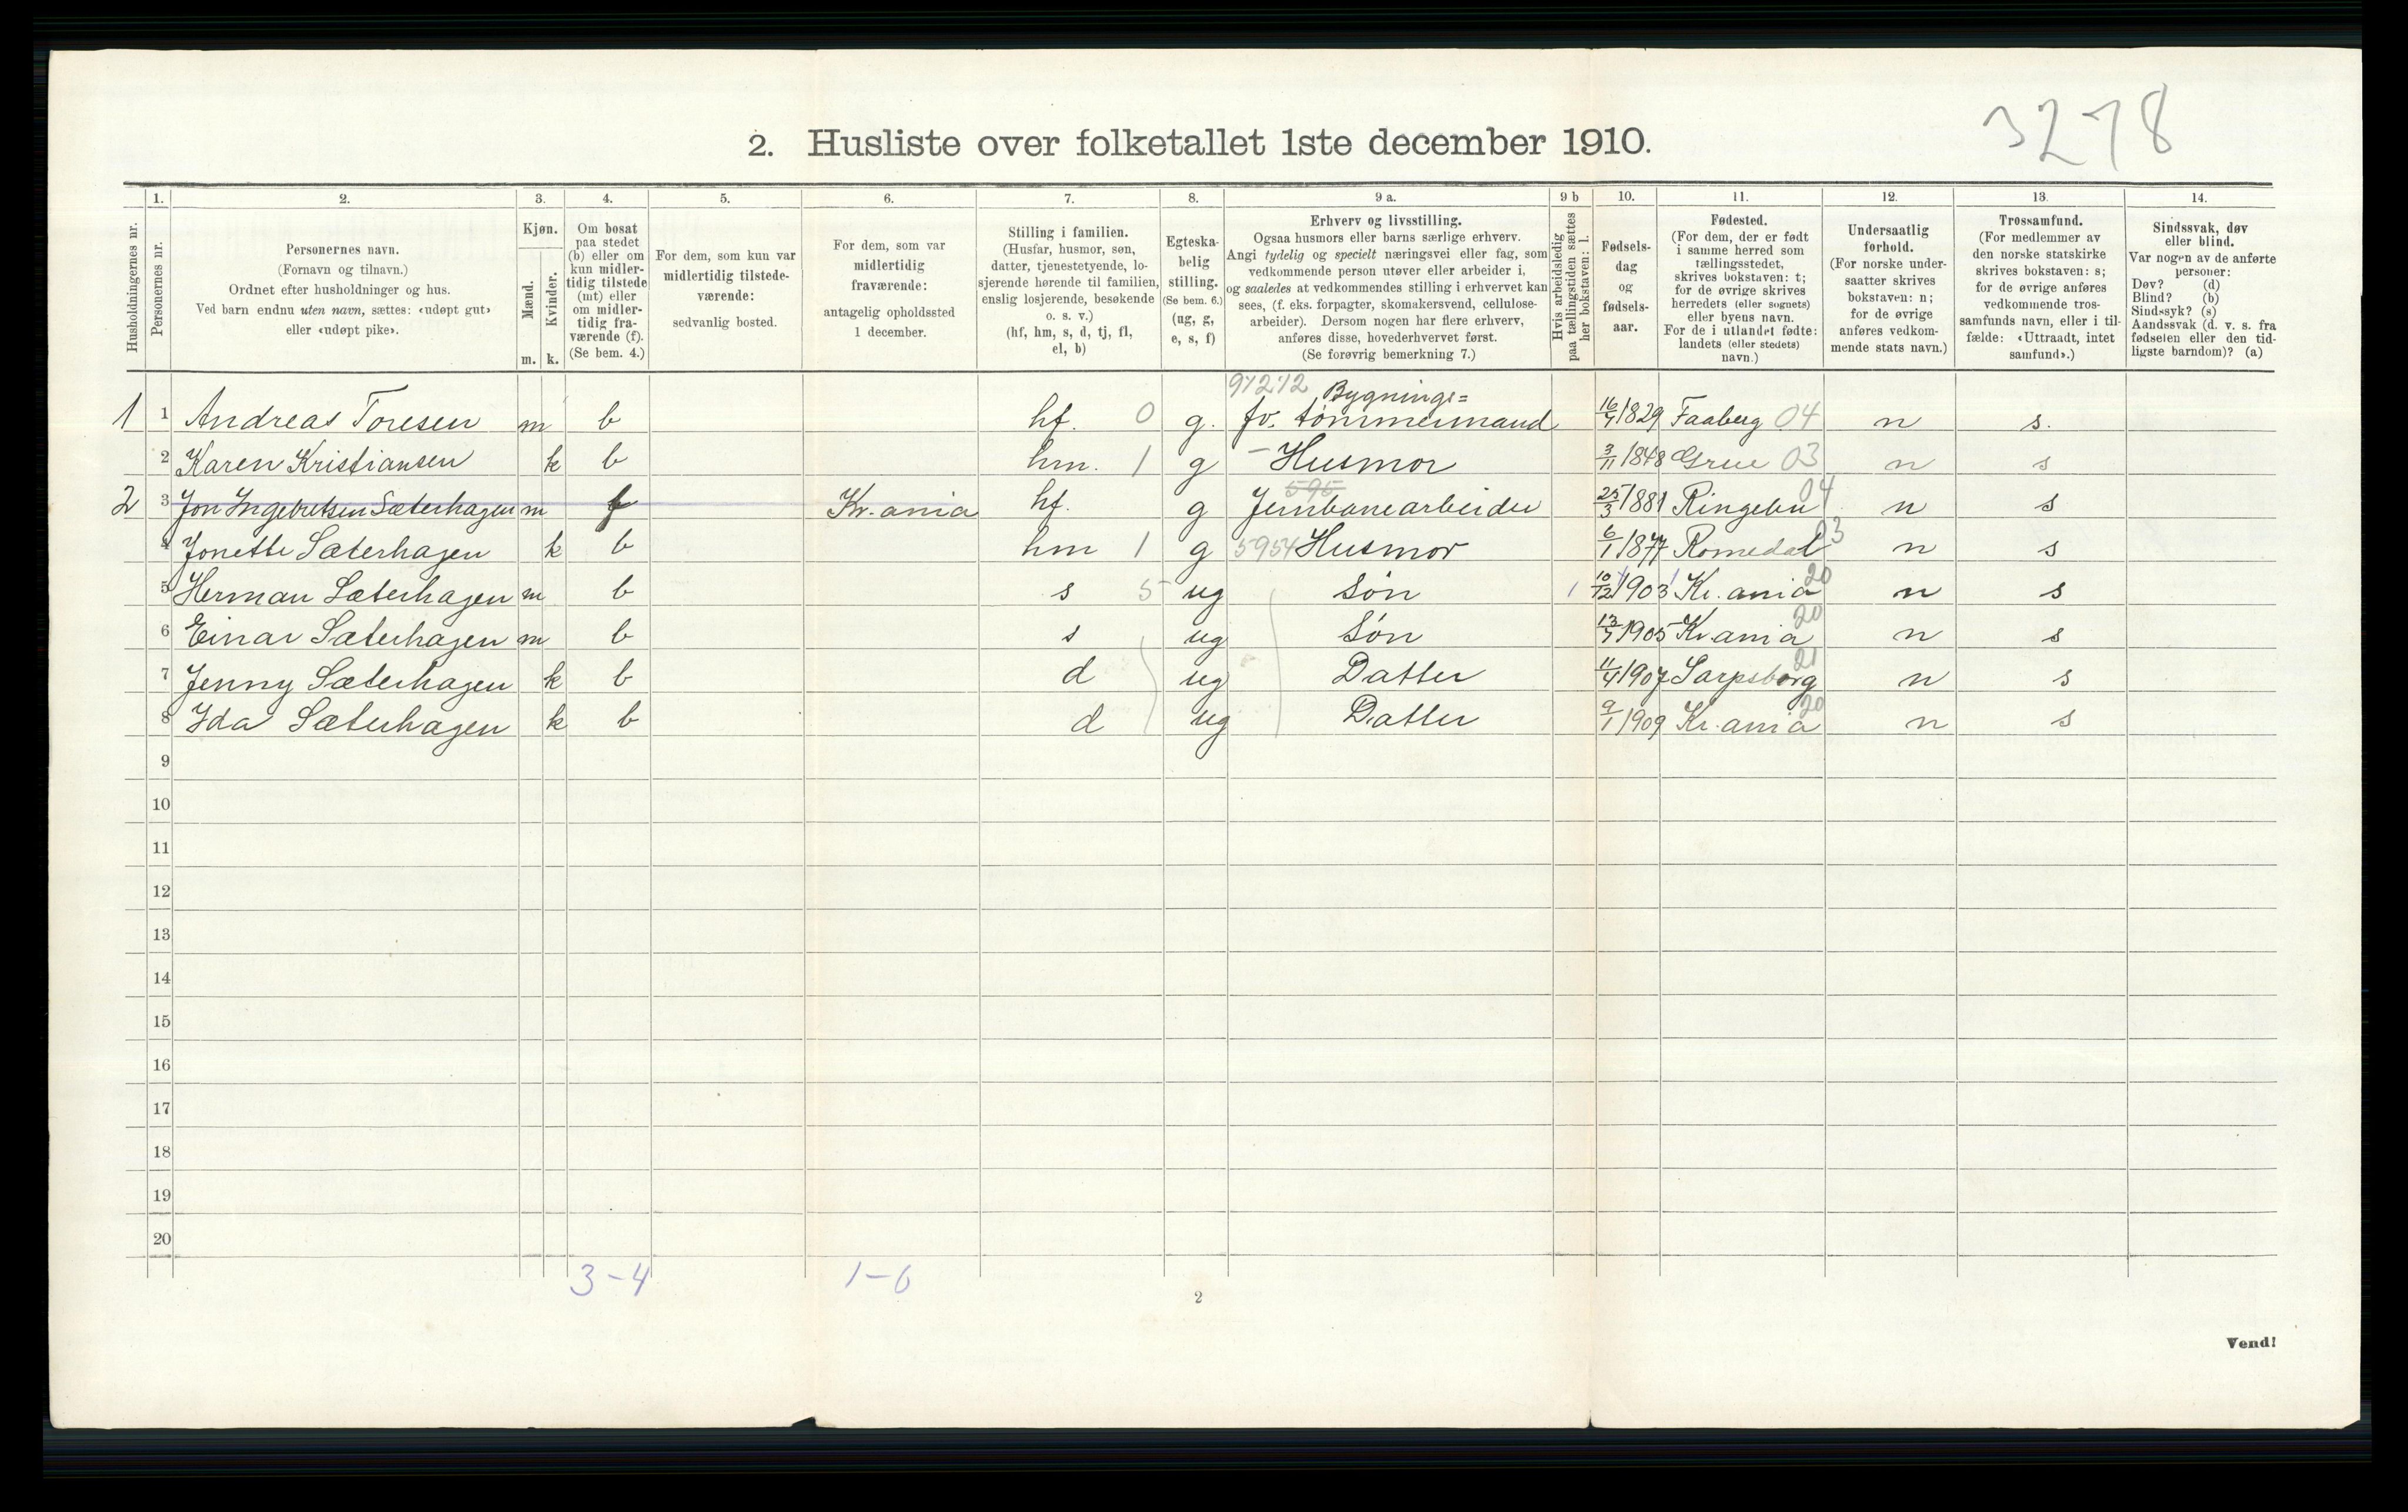 3278
2. Husliste over folketallet 1ste december 1910.
Husholdningernes nr.
1. Personernes nr.
2. Personernes navn.
(Fornavn og tilnavn.)
Ordnet efter husholdninger og hus.
Ved barn endnu uten navn, sættes: «udøpt gut»
eller «udøpt pike».
3. Kjøn.
Mænd. m.
Kvinder. k.
4. Om bosat
paa stedet
(b) eller om
kun midler-
tidig tilstede
(mt) eller
om midler-
tidig fra-
værende (f).
(Se bem. 4.)
5. For dem, som kun var
midlertidig tilstede-
værende:
sedvanlig bosted.
6. For dem, som var
midlertidig
fraværende:
antagelig opholdssted
1 december.
7. Stilling i familien.
(Husfar, husmor, søn,
datter, tjenestetyende, lo-
sjerende hørende til familien,
enslig losjerende, besøkende
o. s. v.)
(hf, hm, s, d, tj, fl,
el, b)
8. Egteska-
belig
stilling.
(Se bem. 6.)
(ug, g,
e, s, f)
9 a. Erhverv og livsstilling.
Ogsaa husmors eller barns særlige erhverv.
Angi tydelig og specielt næringsvei eller fag, som
vedkommende person utøver eller arbeider i,
og saaledes at vedkommendes stilling i erhvervet kan
sees, (f. eks. forpagter, skomakersvend, cellulose-
arbeider). Dersom nogen har flere erhverv,
anføres disse, hovederhvervet først.
(Se forøvrig bemerkning 7.)
9 b Hvis arbeidsledig
paa tællingstiden sættes
her bokstaven: l.
10. Fødsels-
dag
og
fødsels-
aar.
11. Fødested.
(For dem, der er født
i samme herred som
tællingsstedet,
skrives bokstaven: t;
for de øvrige skrives
herredets (eller sognets)
eller byens navn.
For de i utlandet fødte:
landets (eller stedets)
navn.)
12. Undersaatlig
forhold.
(For norske under-
saatter skrives
bokstaven: n;
for de øvrige
anføres vedkom-
mende stats navn.)
13. Trossamfund.
(For medlemmer av
den norske statskirke
skrives bokstaven: s;
for de øvrige anføres
vedkommende tros-
samfunds navn, eller i til-
fælde: «Uttraadt, intet
samfund».)
14. Sindssvak, døv
eller blind.
Var nogen av de anførte
personer:
Døv? (d)
Blind? (b)
Sindssyk? (s)
Aandssvak (d. v. s. fra
fødselen eller den tid-
ligste barndom)? (a)
Bygnings=
1 1 Andreas Toresen m b hf. 0 g. fv. tømmermand 16/4 1829 Faaberg 04 n s.
2 Karen Kristiansen k b hm. 1 g – Husmor 3/11 1848 Grue 03 n s
595
2 3 Jon Ingebretsen Sæterhagen m f Kr.ania hf. g Jernbanearbeider 25/3 1881 Ringebu 04 n s
4 Jonette Sæterhagen k b hm 1 g 5954 Husmor 6/1 1877 Romedal 03 n s
5 Herman Sæterhagen m b s 5 ug Søn 10/12 1903 Kr.ania 20 n s
6 Einar Sæterhagen m b s ug Søn 13/7 1905 Kr.ania 20 n s
7 Jenny Sæterhagen k b d ug Datter 11/4 1907 Sarpsborg 21 n s
8 Ida Sæterhagen k b d ug Datter 9/1 1909 Kr.ania 20 n s
9
10
11
12
13
14
15
16
17
18
19
20
3-4 1-6
2
Vend!